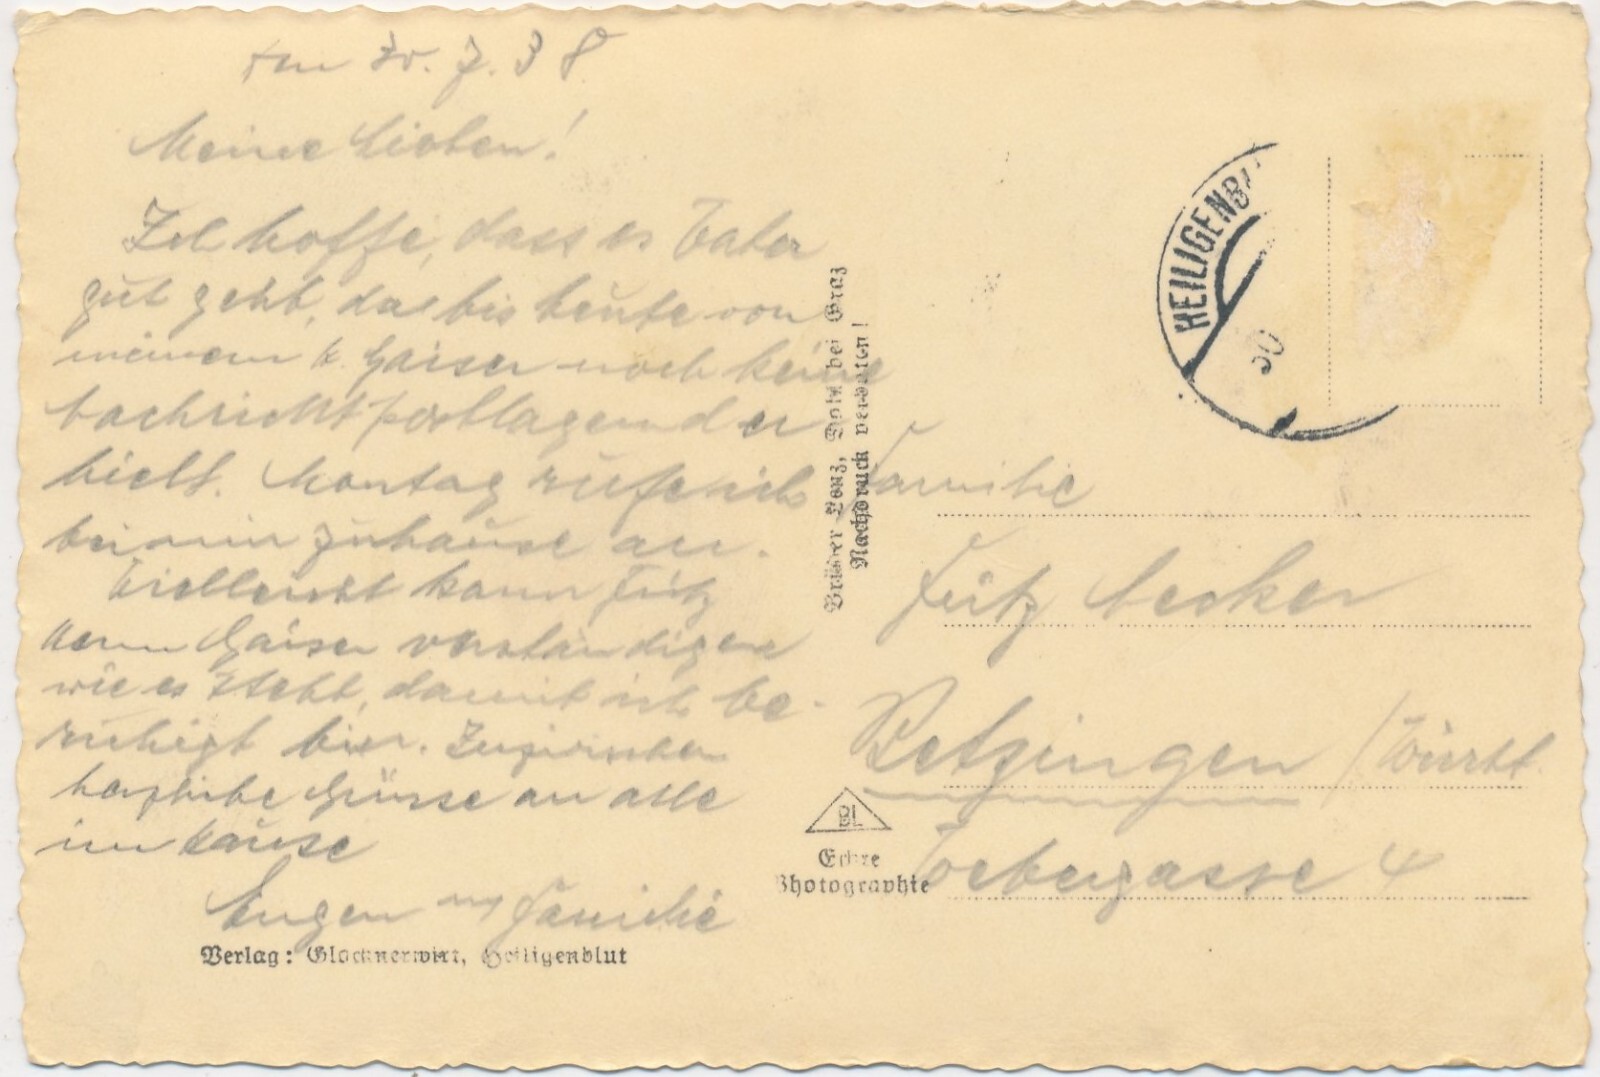 Am 30. 7. 38
Meine Lieben!
Ich hoffe, dass es Vater
gut geht, da bis heute von
meinem H. Gaiser noch keine
Nachricht postlagernd er
hielt. Montag rufe ich
bei mir zuhause an.
Vielleicht kann Fritz
Herrn Gaiser verständigen
wie es steht, damit ich be-
ruhigt bin. Inzwischen
herzliche Grüsse an alle
im Hause
Eugen und Familie
Verlag: Glocknerwirt, Heiligenblut
Brüder Lenz, Dobl bei Graz
Nachdruck verboten!
BL
Echte
Photographie
HEILIGENB
30
Familie
Fritz Becker
Betzingen / Württ.
4